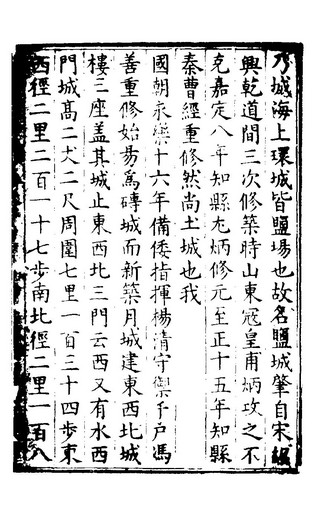 乃城海上環城皆鹽場也故名鹽城肇自宋紹
興乾道間三次修築時山東寇皇甫炳攻之不
克嘉定八年知縣尤炳修元至正十五年知縣
秦曹經重修然尚土城也我
國朝永樂十六年備倭指揮楊清守禦千戶馮
善重修始易爲磚城而新築月城建東西北城
樓三座盖其城止東西北三門云西又有水西
門城高二丈二尺周圍七里一百三十四步東
西徑二里二百一十七步南北徑二里一百八